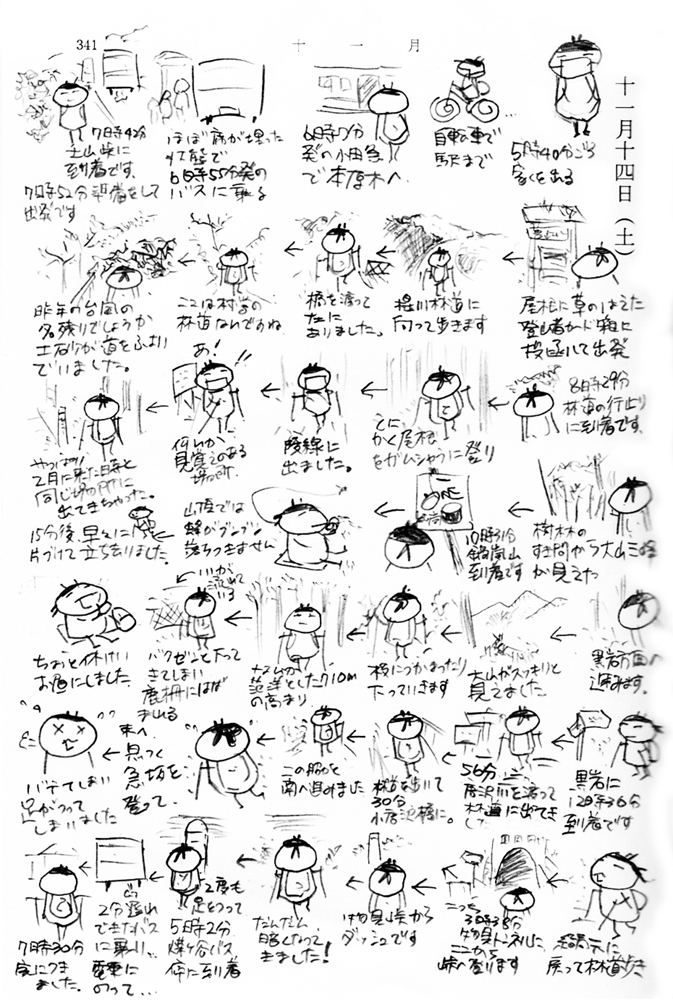 341
十一月
十一月十四日(土)
5時40分ごろ
家を出る
自転車で
駅まで
6時7分
発の小田急
で本厚木へ
ほぼ席が埋った
状態で
6時55分発の
バスに乗る
7時42分
土山峠に
到着です。
7時52分準備をして
出発です
屋根に草のはえた
登山者カード箱に
投函して出発
堤川林道に
向って歩きます
橋を渡って
左に
ありました。
ここは村営の
林道なんですね
昨年の台風の
名残りでしょうか
土砂が道をふさい
でいました。
8時29分
林道の行止り
に到着です。
とに
かく尾根
をガムシャラに登り
稜線に
出ました。
あ!
何か
見覚えのある
場所
やっぱり
2月に来た時と
同じ場所に
出てきちゃった。
樹林の
すき間から大山三峰
が見えた
10時31分
鍋嵐山
到着です
山頂では
蜂がブンブン
落ちつきません
15分後、早々に
片づけて立ち去りました。
黒岩方面へ
進みます。
大山がスッキリと
見えました
枝につかまったり
下っていきます
茫洋とした710m
の高まり
バクゼンと下って
きてしまい
鹿柵にはば
まれる
ちょっと休けい
お昼にしました。
黒岩に
12時36分
到着です
56分
唐沢川を渡って
林道に出てき
した
林道を歩いて
30分
小唐沢橋に。
この脇から
南へ進みました
急坂を
登って、
バテてしまい
足がつって
しまいました
戻って林道歩き
3時38分
物見トンネルに
ここから
峠へ登ります
物見峠から
ダッシュです
だんだん
暗くなって
きました!
2度も
足をつって
5時2分
煤ヶ谷バス
停に到着
2分遅れ
できたバス
に乗り、
電車に
のって…
7時30分
家につき
ました。